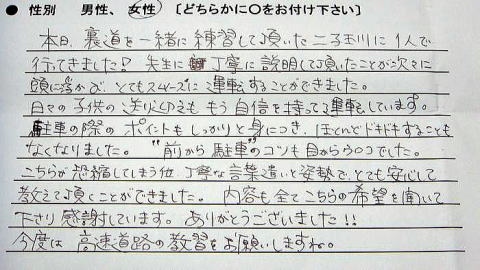 ● 性別　男性、女性　〔どちらかに○をお付け下さい〕
本日、裏道を一緒に練習して頂いた二子玉川に1人で
行ってきました! 先生に丁寧に説明して頂いたことが次々に
頭に浮かび、とてもスムーズに運転することができました。
日々の子供の送りむかえも もう自信を持って運転しています。
駐車の際のポイントもしっかりと身につき、ほとんどドキドキすることも
なくなりました。"前から駐車"のコツも目からウロコでした。
こちらが恐縮してしまう位 丁寧な言葉遣いと姿勢で、とても安心して
教えて頂くことができました。内容も全てこちらの希望を聞いて
下さり感謝しています。ありがとうございました!!
今度は 高速道路の教習をお願いしますね。